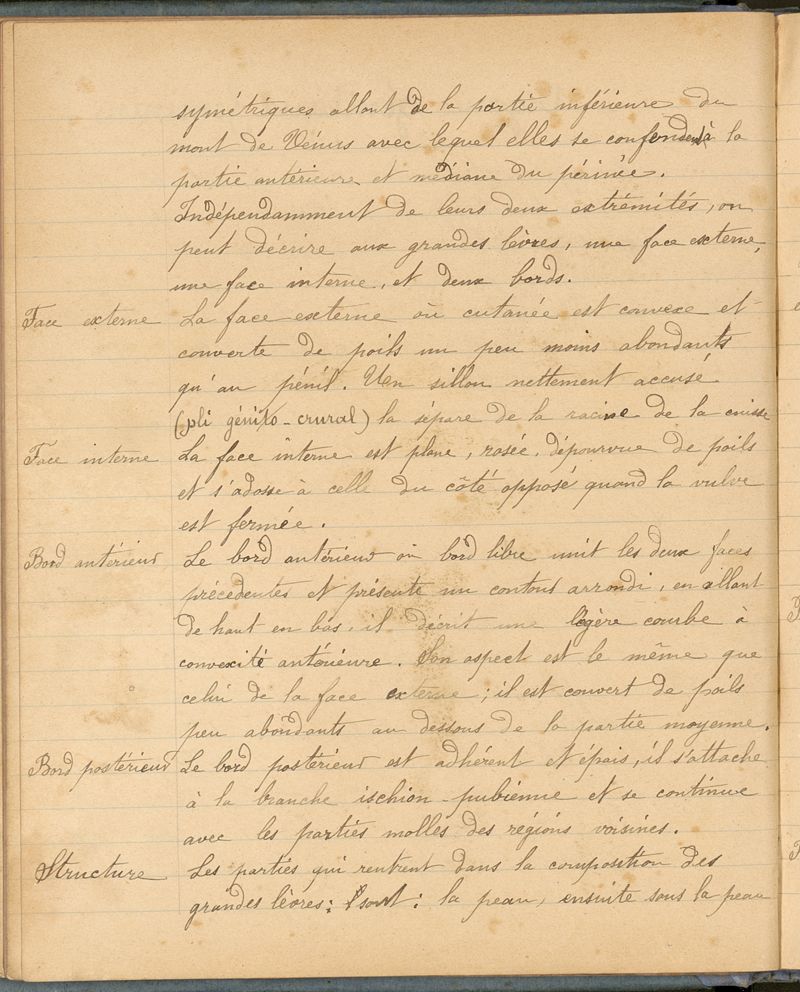 symétriques allant de la partie inférieure du
mont de Vénus avec lequel elles se confondent à la
partie antérieure et médiane du périnée.
Indépendamment de leurs deux extrémités, on
peut décrire aux grandes lèvres, une face externe,
une face interne, et deux bords.
Face externe La face externe où cutanée est convexe et
couverte de poils un peu moins abondants
qu'au pénil. Un sillon nettement accusé
(pli génito-crural) la sépare de la racine de la cuisse
Face interne La face interne est plane, rosée, dépourvue de poils
et s'adosse à celle du côté opposé quand la vulve
est fermée.
Bord antérieur Le bord antérieur où bord libre unit les deux faces
précedentes et présente un contour arrondi, en allant
de haut en bas, il décrit une légère courbe à
convexité antérieure. Son aspect est le même que
celui de la face externe; il est couvert de poils
peu abondants au dessous de la partie moyenne.
Bord postérieur Le bord postérieur est adhérent et épais, il s'attache
à la branche ischion-pubienne et se continue
avec les parties molles des régions voisines.
Structure Les parties qui rentrent dans la composition des
grandes lèvres: sont: la peau, ensuite sous la peau